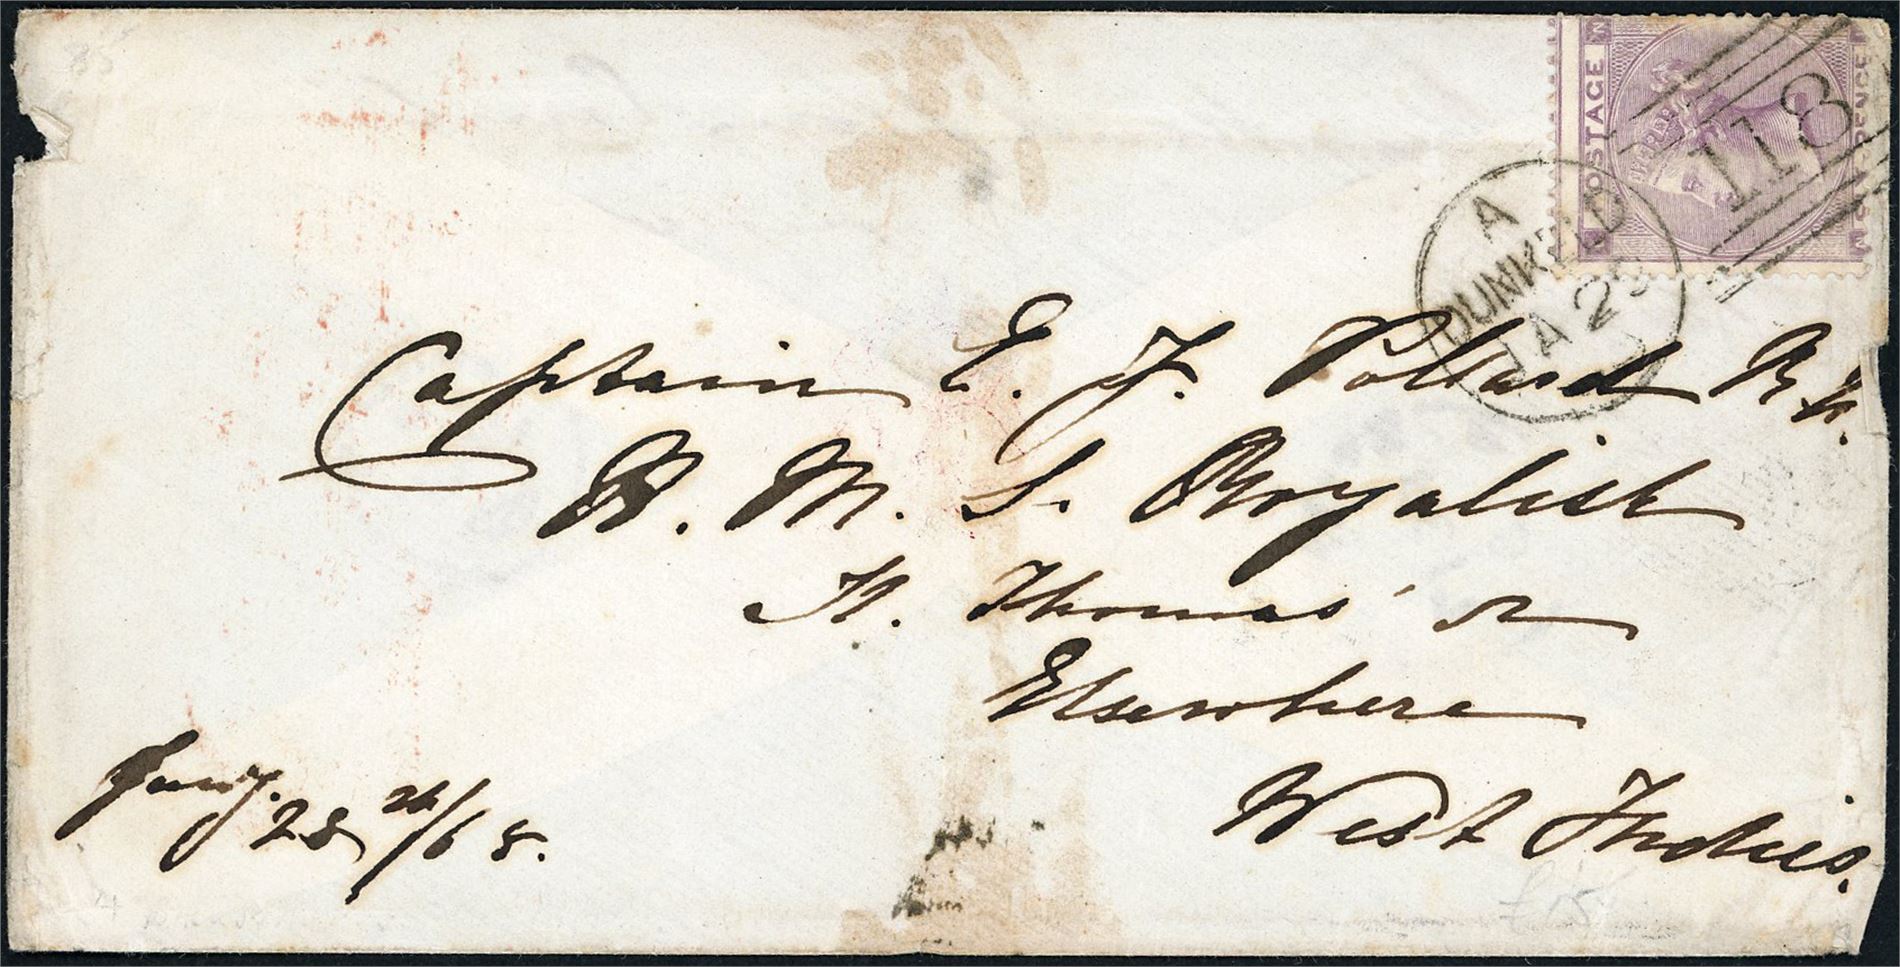 POSTAGE
118
A
DUNKELD
JA 2
Captain E. J. Pollard R.N.
H. M. S. Royalist
St. Thomas' or
Elsewhere
West Indies.
Jany. 28th/68.
£15